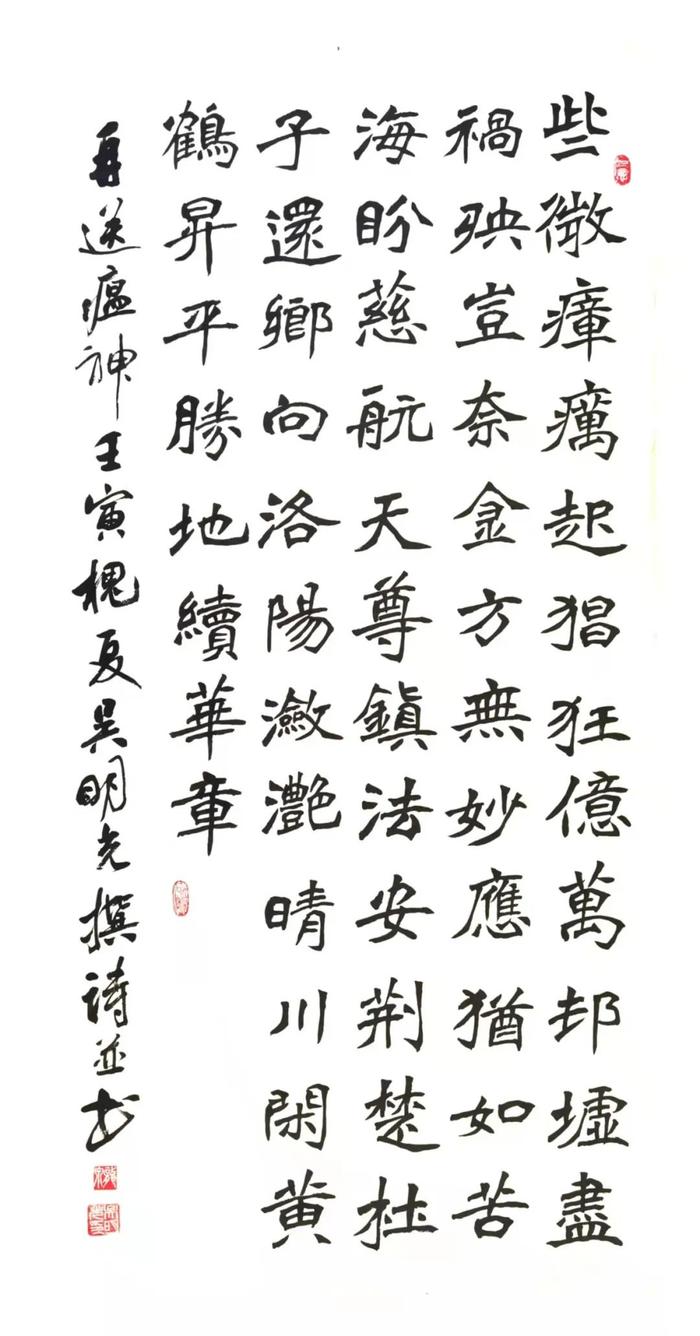 些微瘴癘起猖狂億萬邦墟盡
禍殃豈奈金方無妙應猶如苦
海盼慈航天尊鎮法安荆楚杜
子還鄉向洛陽瀲灧晴川閑黄
鶴昇平勝地續華章
再送瘟神壬寅槐夏吴明光撰詩並书